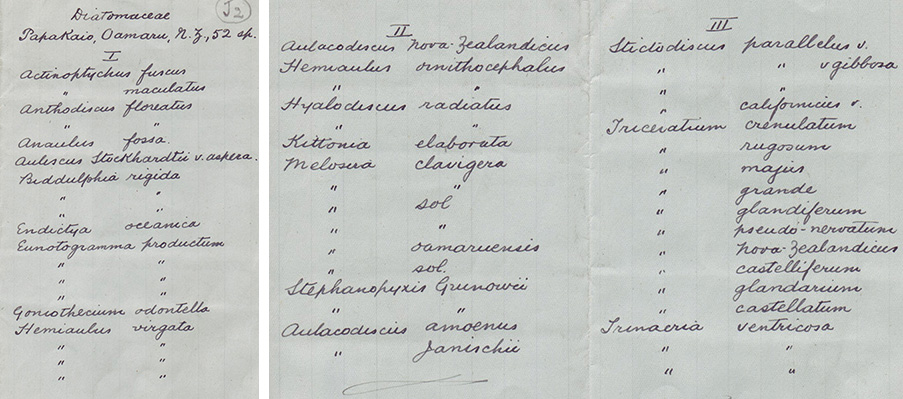 J2
Diatomaceae
Papakaio, Oamaru, N.Z., 52 sp.
I
Actinoptychus fuscus
" maculatus
Anthodiscus floreatus
" "
Anaulus fossa.
Auliscus Stöckhardtii v. aspera.
Biddulphia rigida
" "
" "
Endictya oceanica
Eunotogramma productum
" "
" "
Goniothecium odontella
Hemiaulus virgata
" "
" "
" "
II
Aulacodiscus Nova-Zealandicus
Hemiaulus ornithocephalus
" "
Hyalodiscus radiatus
" "
Kittonia elaborata
Melosira clavigera
" "
" sol
" "
" oamaruensis
" sol.
Stephanopyxis Grunowii
" "
Aulacodiscus amoenus
" Janischii
III
Stictodiscus parallelus v.
" " v gibbosa
" "
" californicus v.
Triceratium crenulatum
" rugosum
" majus
" grande
" glandiferum
" pseudo-nervatum
" Nova-Zealandicus
" castelliferum
" glandarium
" castellatum
Trinacria ventricosa
" "
" "